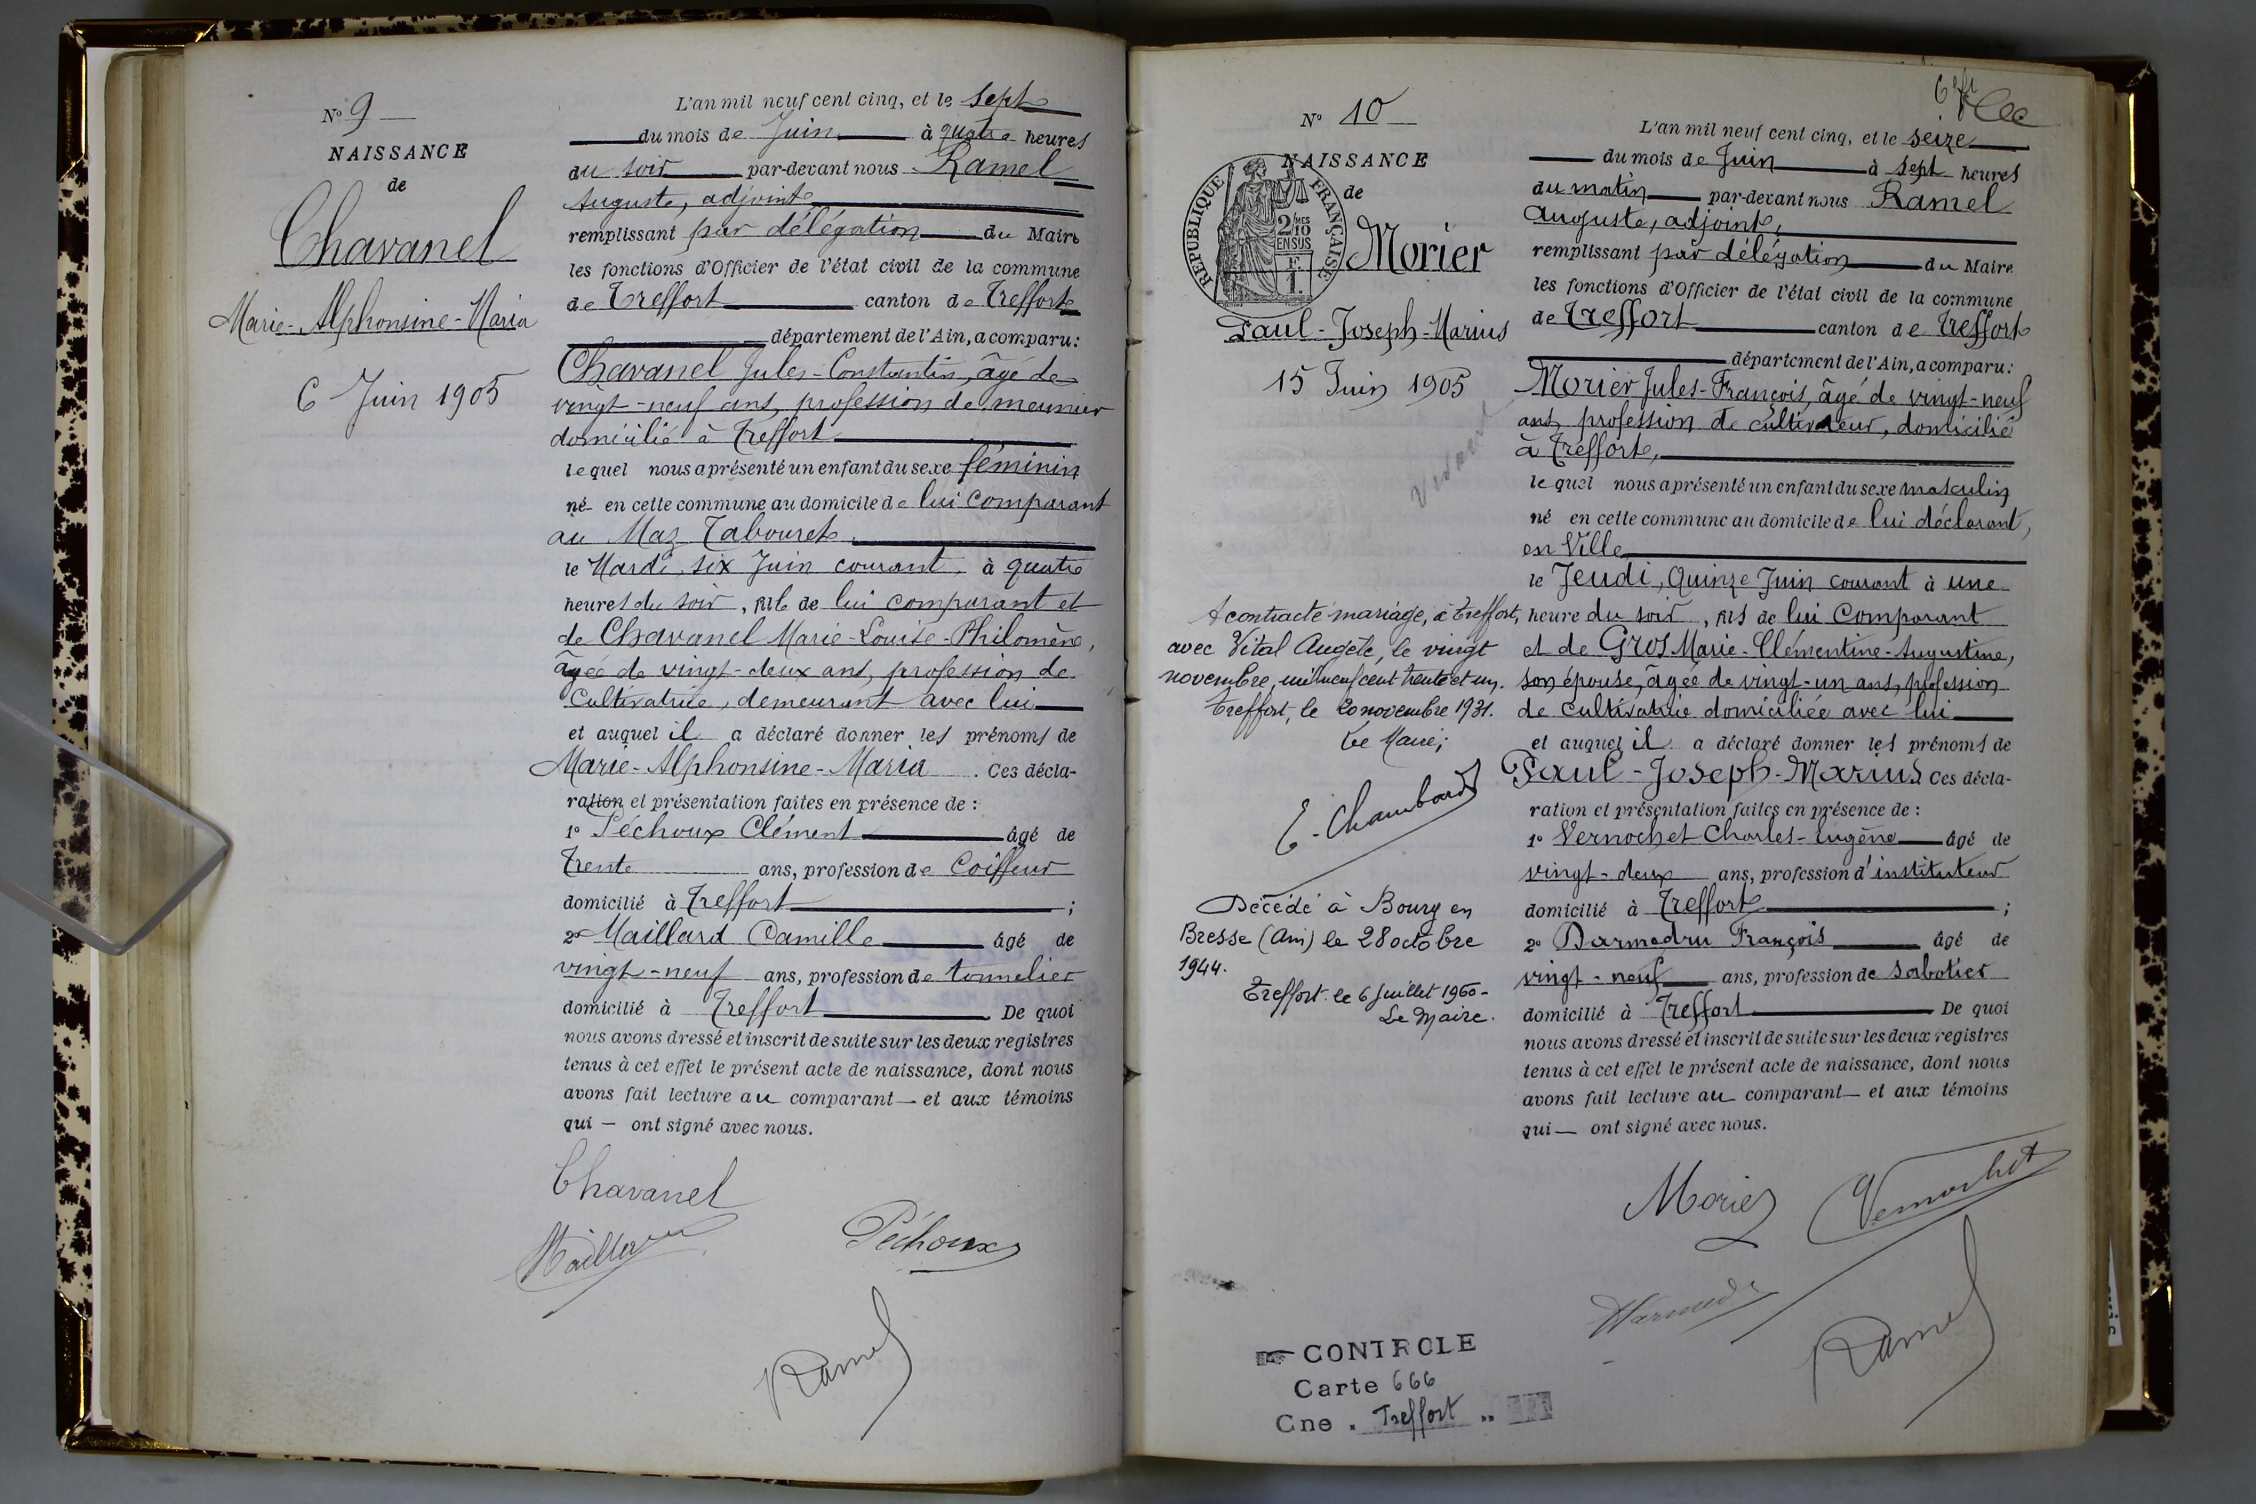 N° 9
NAISSANCE
de
Chavanel
Marie-Alphonsine-Maria
6 Juin 1905
L'an mil neuf cent cinq, et le sept
du mois de Juin à quatre heures
du soir par-devant nous Ramel
Auguste, adjoint
remplissant par délégation du Maire
les fonctions d'Officier de l'état civil de la commune
de Treffort canton de Treffort
département de l'Ain, a comparu:
Chavanel Jules-Constantin, âgé de
vingt-neuf ans, profession de meunier
domicilié à Treffort
lequel nous a présenté un enfant du sexe féminin
né en cette commune au domicile de lui comparant
au Maz Tabouret,
le Mardi, six Juin courant, à quatre
heures du soir, fille de lui comparant et
de Chavanel Marie-Louise-Philomène,
âgée de vingt-deux ans, profession de
cultivatrice, demeurant avec lui
et auquel il a déclaré donner les prénoms de
Marie-Alphonsine-Maria. Ces décla-
ration et présentation faites en présence de :
1° Péchoux Clément âgé de
Trente ans, profession de Coiffeur
domicilié à Treffort ;
2° Maillard Camille âgé de
vingt-neuf ans, profession de tonnelier
domicilié à Treffort. De quoi
nous avons dressé et inscrit de suite sur les deux registres
tenus à cet effet le présent acte de naissance, dont nous
avons fait lecture au comparant et aux témoins
qui — ont signé avec nous.
Chavanel
Maillard
Péchoux
Ramel
N° 10
NAISSANCE
de
RÉPUBLIQUE FRANÇAISE
2/10 MES
EN SUS
F.
1.
Morier
Paul-Joseph-Marius
15 Juin 1905
A contracté mariage, à Treffort,
avec Vital Augèle, le vingt
novembre, mil neuf cent trente et un.
Treffort, le 20 novembre 1931.
Le Maire;
E. Chambard
Décédé à Bourg en
Bresse (Ain) le 28 octobre
1944.
Treffort le 6 Juillet 1960-
Le Maire.
L'an mil neuf cent cinq, et le seize
du mois de Juin à sept heures
du matin par-devant nous Ramel
Auguste, adjoint,
remplissant par délégation du Maire
les fonctions d'Officier de l'état civil de la commune
de Treffort canton de Treffort
département de l'Ain, a comparu:
Morier Jules-François, âgé de vingt-neuf
ans, profession de cultivateur, domicilié
à Treffort,
lequel nous a présenté un enfant du sexe masculin
né en cette commune au domicile de lui déclarant,
en Ville
le Jeudi, Quinze Juin courant à une
heure du soir, fils de lui Comparant
et de Gros Marie-Clémentine-Augustine,
son épouse, âgée de vingt-un ans, profession
de cultivatrice domiciliée avec lui
et auquel il a déclaré donner les prénoms de
Paul-Joseph-Marius. Ces décla-
ration et présentation faites en présence de :
1° Vernochet Charles-Eugène âgé de
vingt-deux ans, profession d'instituteur
domicilié à Treffort ;
2° Darmedru François âgé de
vingt-neuf ans, profession de sabotier
domicilié à Treffort De quoi
nous avons dressé et inscrit de suite sur les deux registres
tenus à cet effet le présent acte de naissance, dont nous
avons fait lecture au comparant — et aux témoins
qui — ont signé avec nous.
Morier
Vernochet
Ramel
CONTROLE
Carte 666
Cne. Treffort